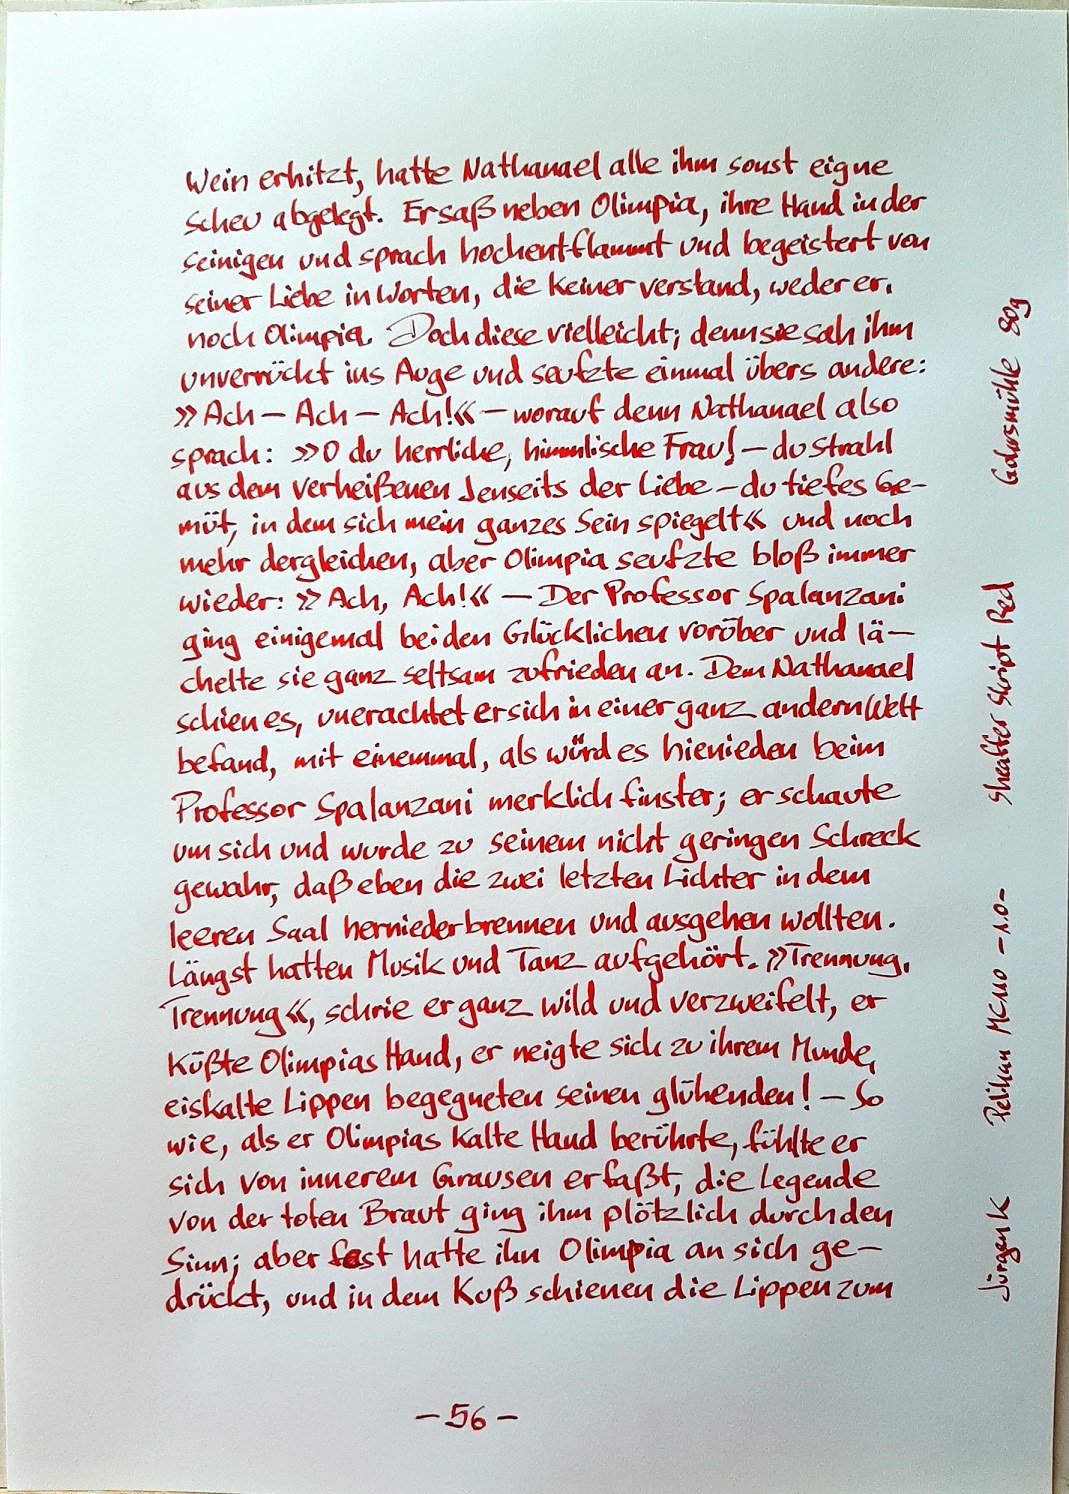 Wein erhitzt, hatte Nathanael alle ihm sonst eigne
Scheu abgelegt. Er saß neben Olimpia, ihre Hand in der
seinigen und sprach hochentflammt und begeistert von
seiner Liebe in Worten, die keiner verstand, weder er,
noch Olimpia. Doch diese vielleicht; denn sie sah ihm
unverrückt ins Auge und seufzte einmal übers andere:
»Ach – Ach – Ach!« – worauf denn Nathanael also
sprach: »O du herrliche, himmlische Frau! – du Strahl
aus dem verheißenen Jenseits der Liebe – du tiefes Ge-
müt, in dem sich mein ganzes Sein spiegelt« und noch
mehr dergleichen, aber Olimpia seufzte bloß immer
wieder: »Ach, Ach!« – Der Professor Spalanzani
ging einigemal bei den Glücklichen vorüber und lä-
chelte sie ganz seltsam zufrieden an. Dem Nathanael
schien es, unerachtet er sich in einer ganz andern Welt
befand, mit einemmal, als würd es hienieden beim
Professor Spalanzani merklich finster; er schaute
um sich und wurde zu seinem nicht geringen Schreck
gewahr, daß eben die zwei letzten Lichter in dem
leeren Saal herniederbrennen und ausgehen wollten.
Längst hatten Musik und Tanz aufgehört. »Trennung,
Trennung«, schrie er ganz wild und verzweifelt, er
küßte Olimpias Hand, er neigte sich zu ihrem Munde,
eiskalte Lippen begegneten seinen glühenden! – So
wie, als er Olimpias kalte Hand berührte, fühlte er
sich von innerem Grausen erfaßt, die Legende
von der toten Braut ging ihm plötzlich durch den
Sinn; aber fest hatte ihn Olimpia an sich ge-
drückt, und in dem Kuß schienen die Lippen zum
– 56 –
Jürgen K Pelikan M – 1.0 – Sheaffer Skript Red Gohrsmühle 80g